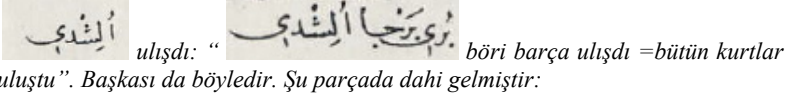 اُلِشْدىِ ulışdı: “ بُرىِ بَرْجا اُلِشْدىِ böri barça ulışdı =bütün kurtlar
uluştu”. Başkası da böyledir. Şu parçada dahi gelmiştir: